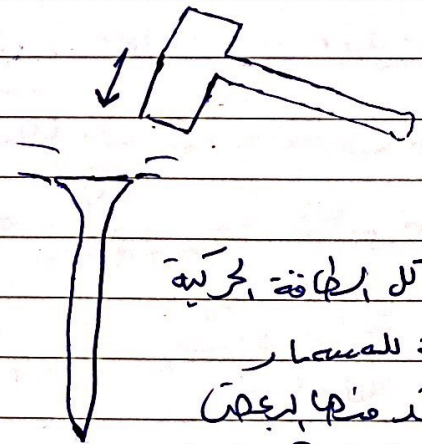 كل الطاقة الحركية
للمسمار
منها البعض